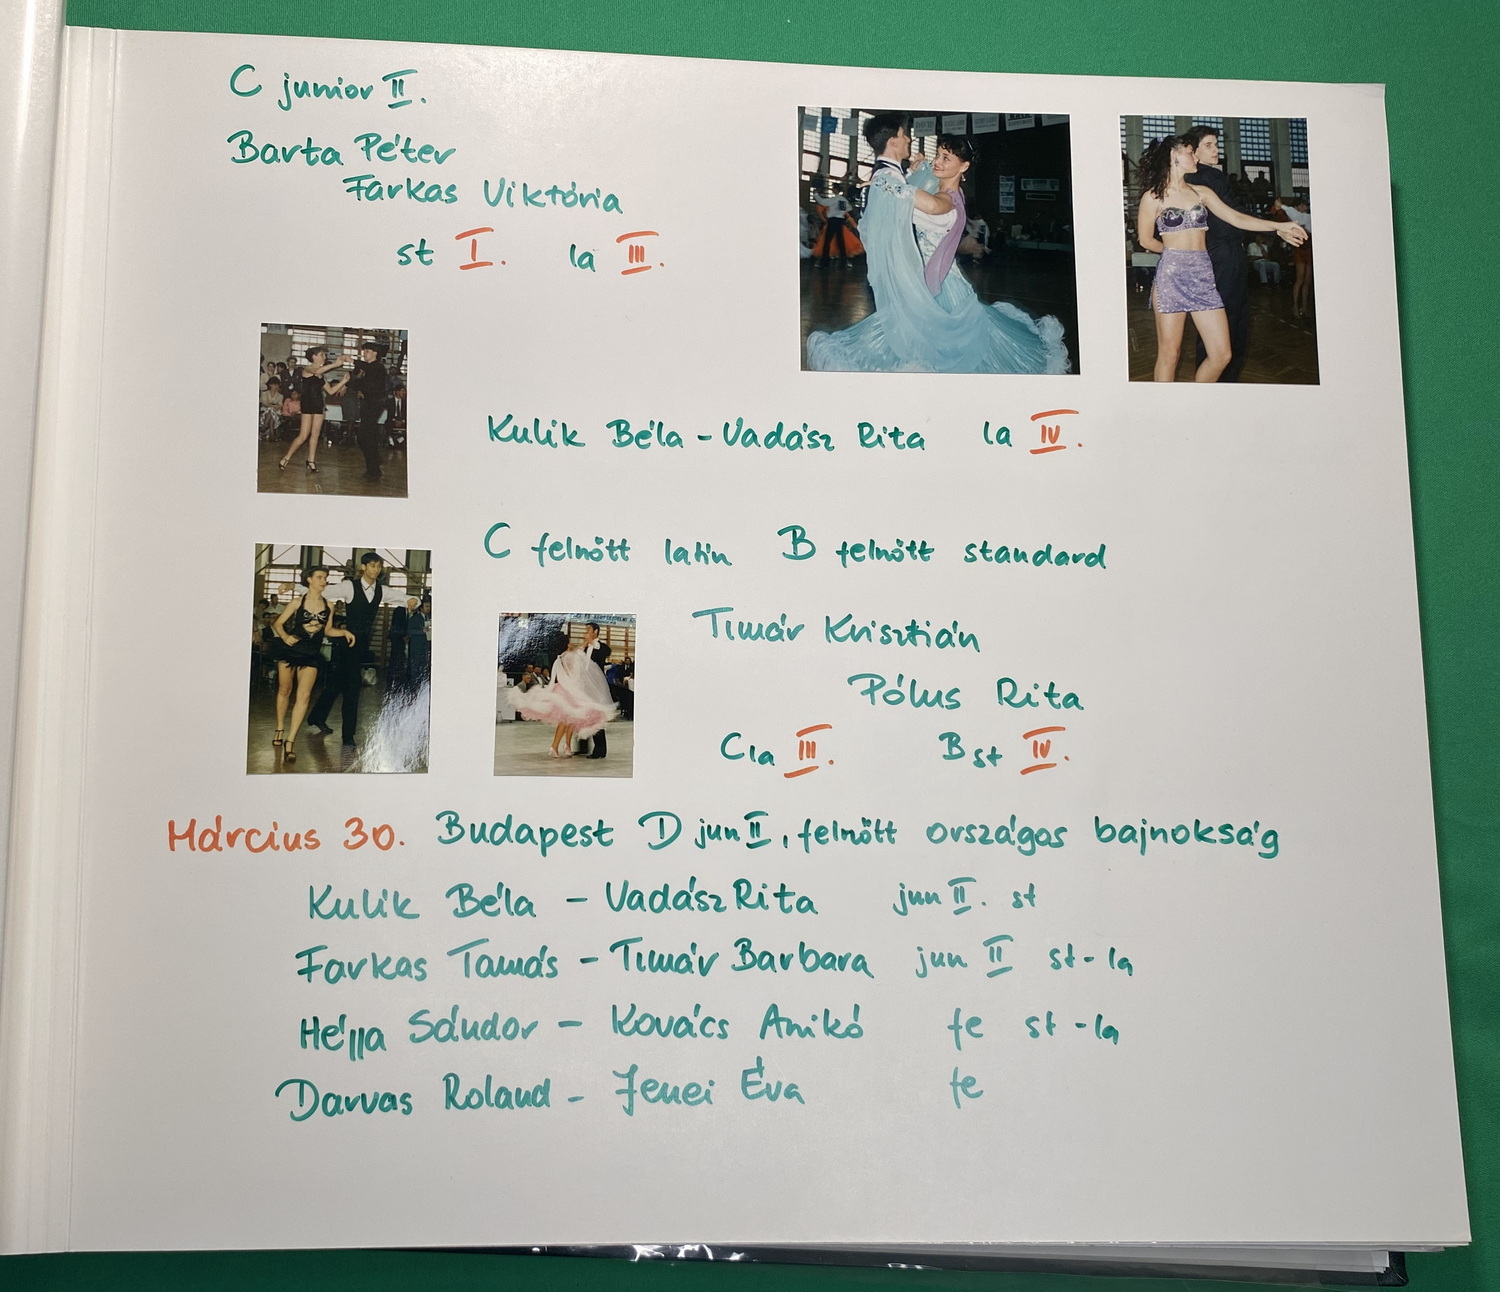 C junior II.
Barta Péter
Farkas Viktória
st I. la III.
Kulik Béla - Vadász Rita la IV.
C felnőtt latin B felnőtt standard
Timár Krisztián
Pólus Rita
C la III. B st IV.
Március 30. Budapest D jun II, felnőtt országos bajnokság
Kulik Béla - Vadász Rita jun II. st
Farkas Tamás - Timár Barbara jun II st-la
Héjja Sándor - Kovács Anikó fe st-la
Darvas Roland - Jenei Éva fe